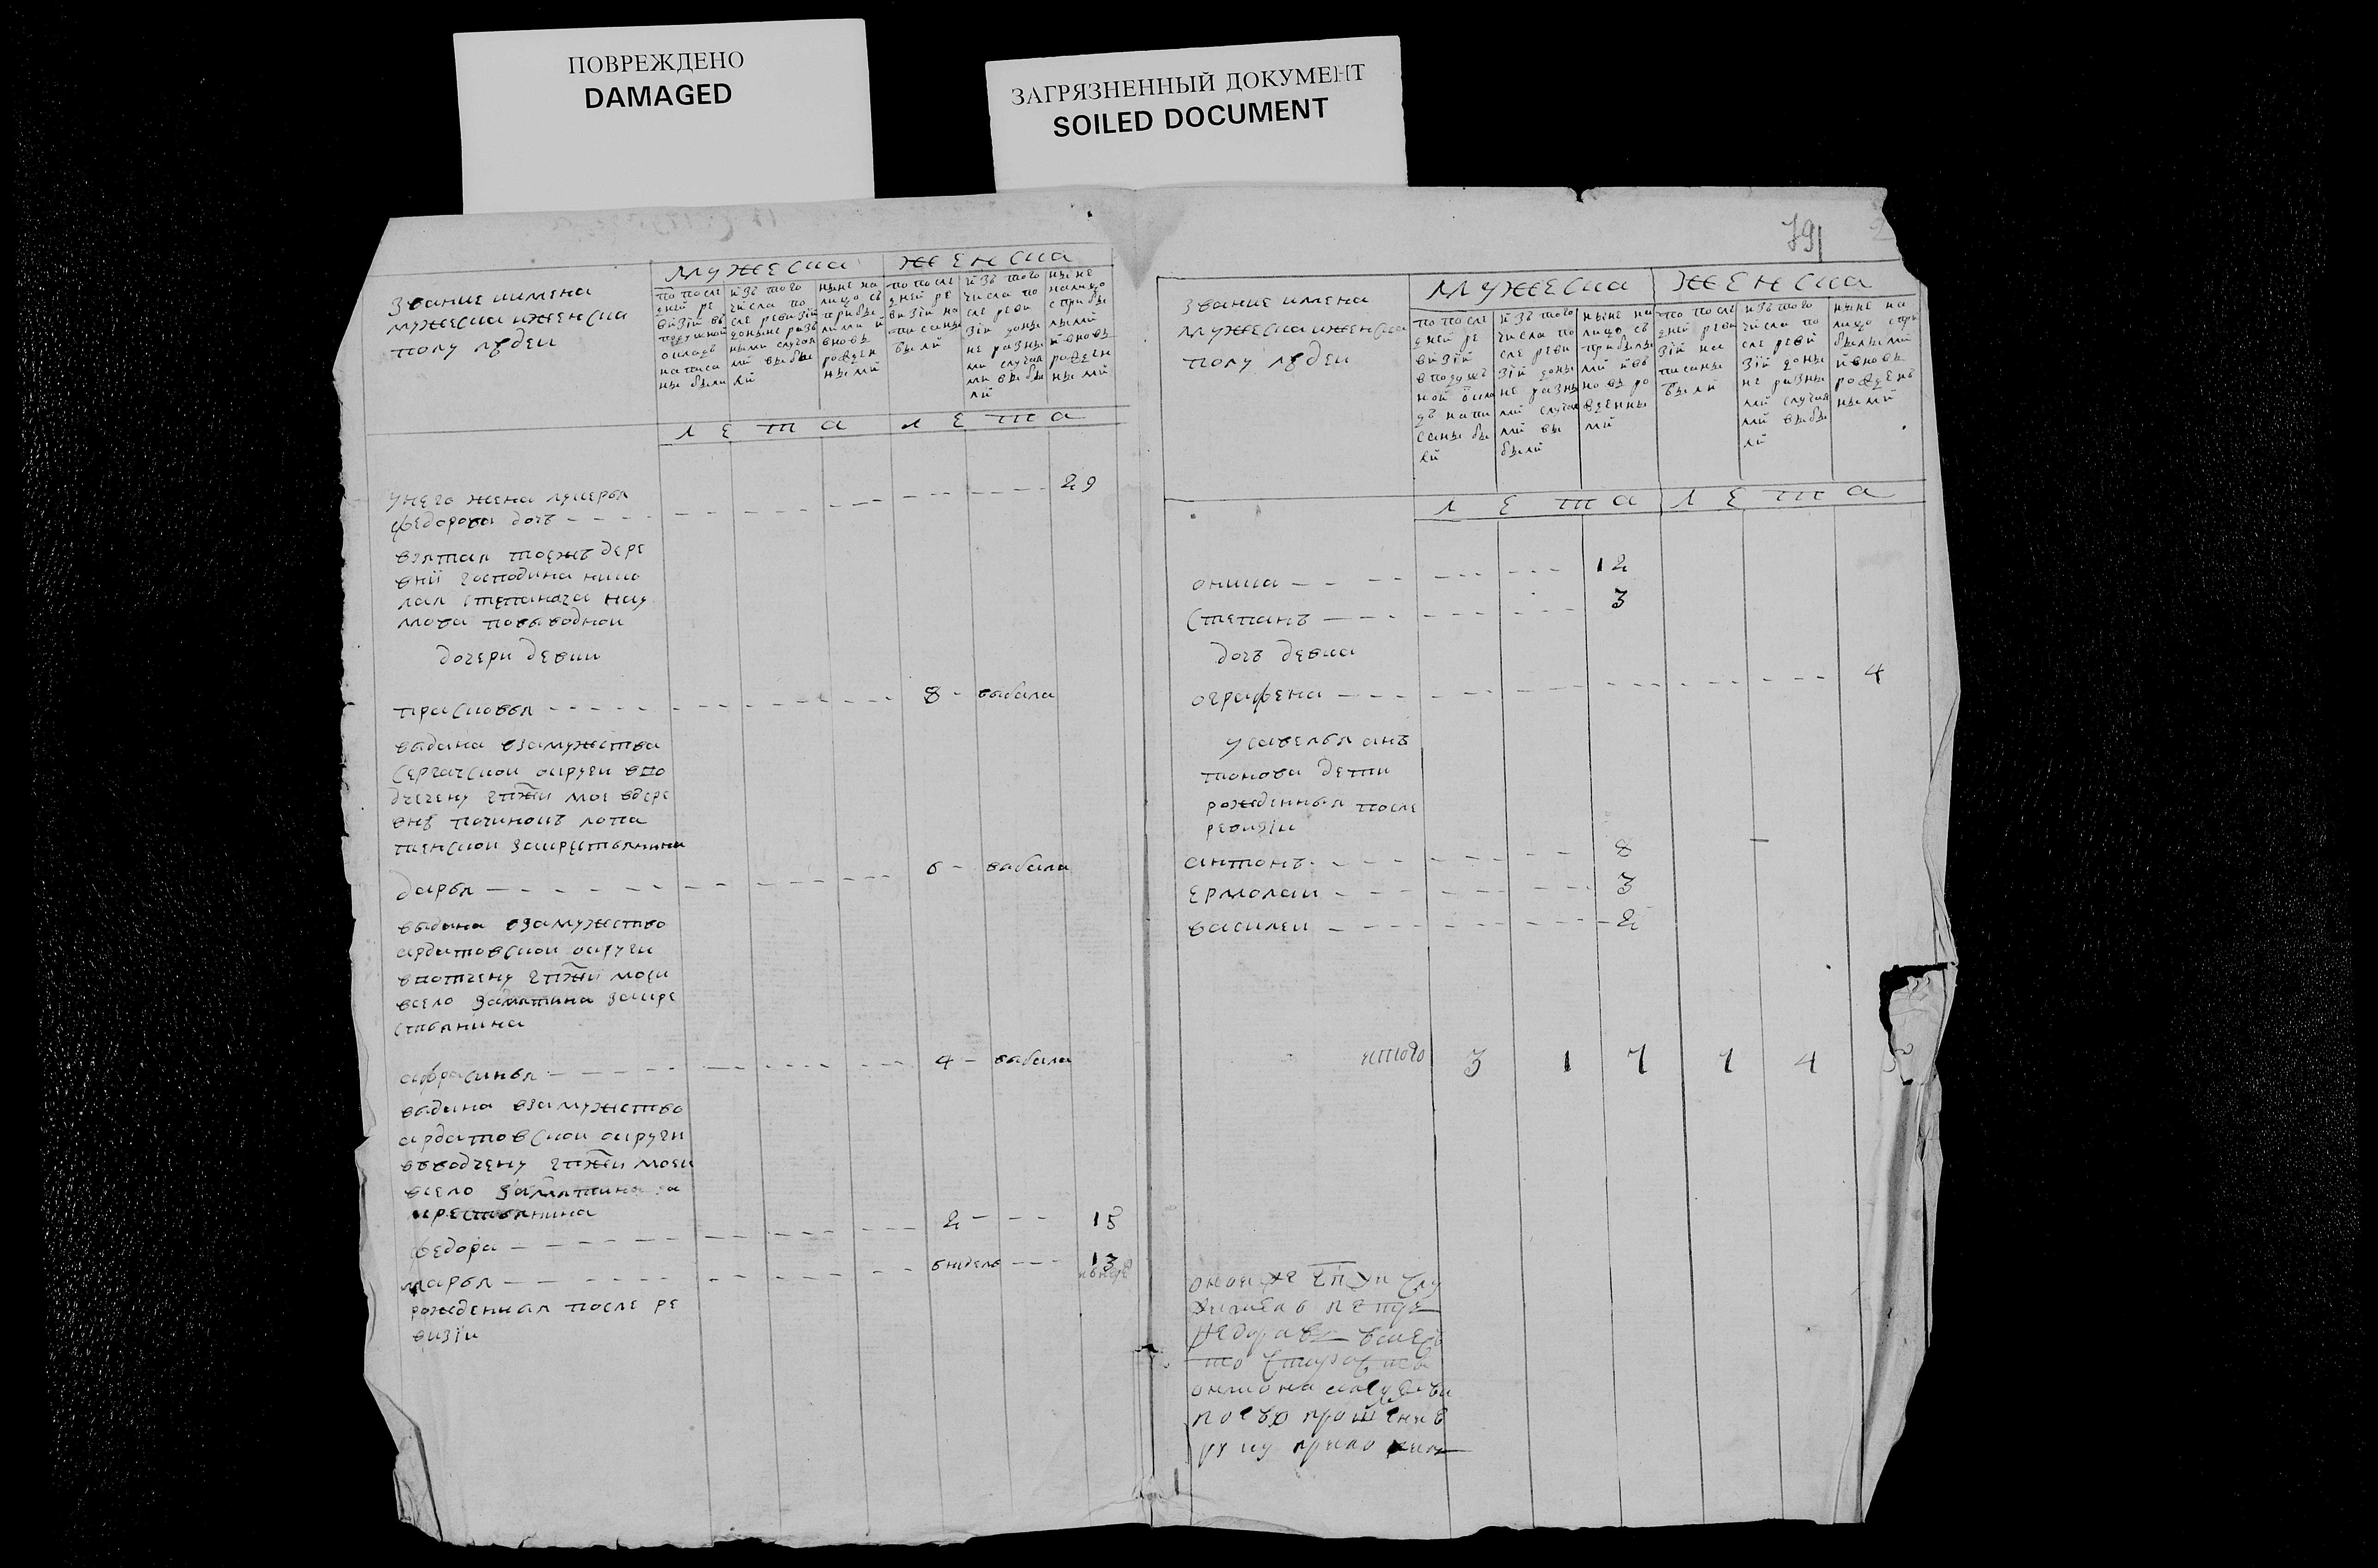 ПОВРЕЖДЕНО
DAMAGED
ЗАГРЯЗНЕННЫЙ ДОКУМЕНТ
SOILED DOCUMENT
звание имена
мужеска иженска
полу людеи
мужеска
женска
по после
дней ре
визїй въ
подушной
окладъ
написа
ны были
изъ того
числа по
сле ревизїй
доныне разъ
ными случая
ми выбы
ли
ныне на
лицо съ
прибы
лыми и
вновь
рожден
ными
по после
дней ре
визїй на
писаны
были
изъ того
числа по
сле реви
зїй доны
не разны
ми случая
ми выбы
ли
ныне
налицо
с прибы
лыми
и вновь
рожден
ными
лета
лета
унего жена лукерья
федорова дочь
29
взятая тоежъ дере
вни господина нико
лая степановича нау
мова повыводнои
дочери девки
прасковья 8 выбыла
выдана взамужства
сергачскои округи впо
мое вдере
внѣ починокъ лопа
тинскои закрестьянина
дарья 6 выбыла
выдана взамужство
ардатовскои округи
моеи
всело замятина закре
стьянина
афросинья 4 выбыла
выдана взамужство
ардатовскои округи
моеи
всело замятина за
крестьянина
федора 2 15
марья внидель 13
рожденныя после ре
визїи
791
звание имена
мужеска иженска
полу людеи
мужеска
женска
по после
дней ре
визїй
в подуш
ной окла
дъ напи
саны бы
ли
изъ того
числа по
сле реви
зїй доны
не разны
ми случая
ми вы
были
ныне на
лицо съ
прибылы
ми и въ
новь ро
жденны
ми
по после
дней реви
зїй на
писаны
были
изъ того
числа по
сле реви
зїй доны
не разны
ми случая
ми выбы
ли
ныне на
лицо спри
былыми
и вновь
рожденъ
ными
лета
лета
оника 12
степанъ 3
дочь девка
ографена 4
усавелья анъ
тонова дети
рожденныя после
ревизїи
антонъ 8
ермолаи 3
василеи 2
итого 3 1 7 7 4
руку приложил